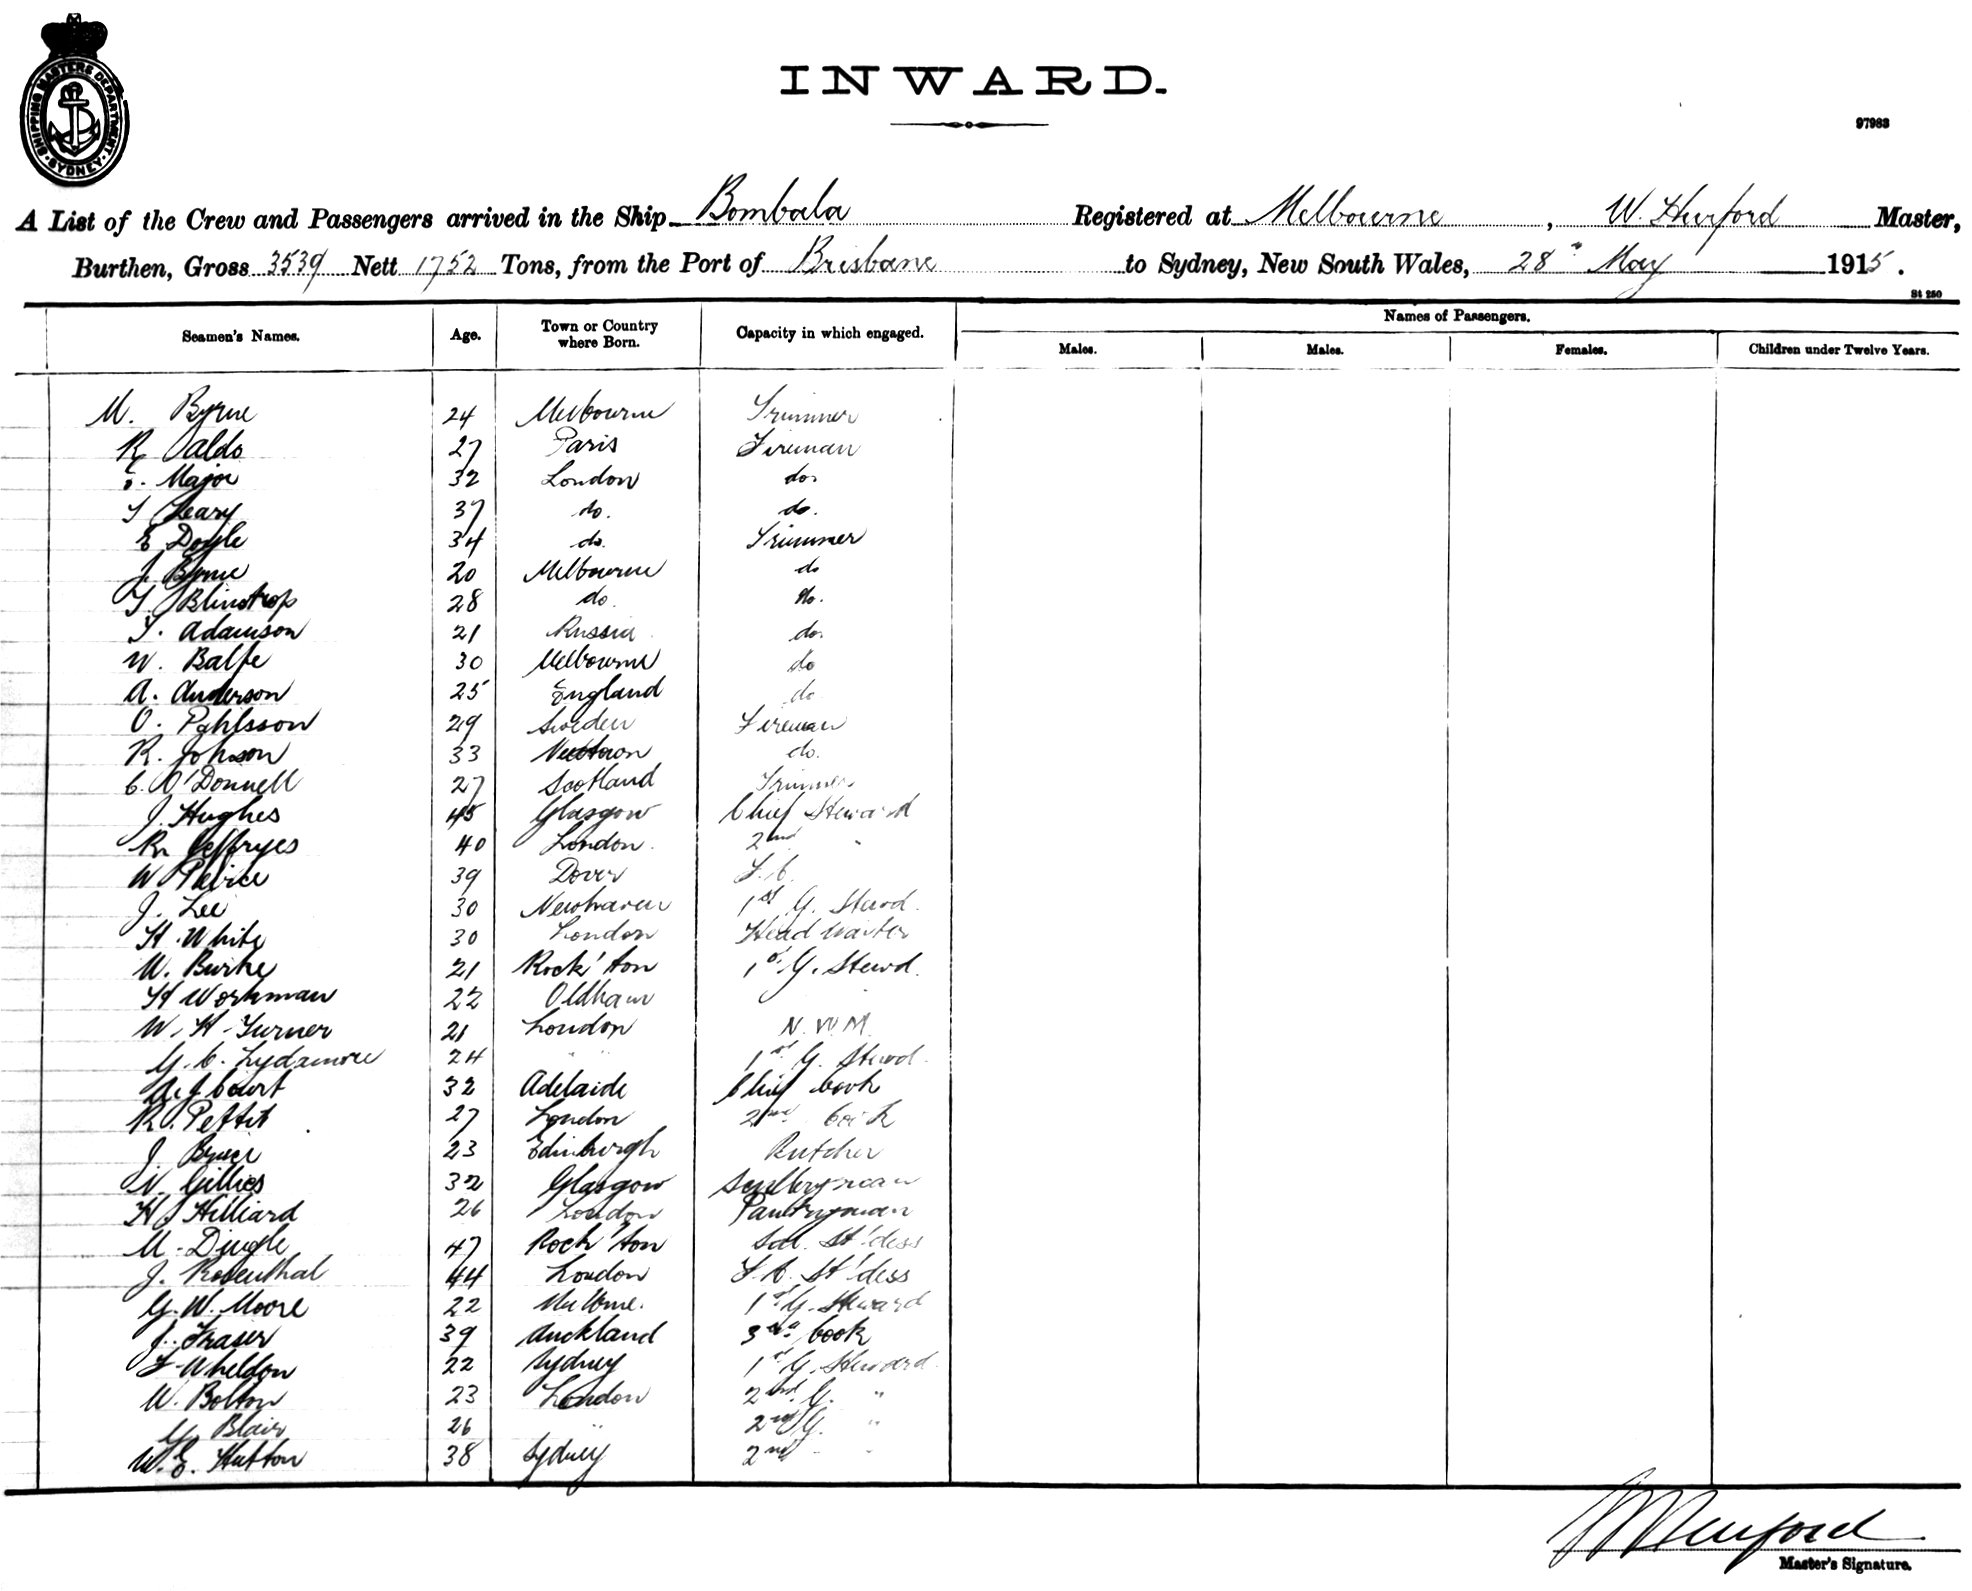 SHIPPING MASTERS DEPARTMENT · SYDNEY ·
INWARD.
97983
A List of the Crew and Passengers arrived in the Ship Bombala Registered at Melbourne, W. Hurford Master,
Burthen, Gross 3539 Nett 1752 Tons, from the Port of Brisbane to Sydney, New South Wales, 28th May 1915.
St 250
Seamen's Names. Age. Town or Country where Born. Capacity in which engaged. Names of Passengers.
Males. Males. Females. Children under Twelve Years.
M. Byrne 24 Melbourne Trimmer
R aldo 27 Paris Fireman
Major 32 London do.
T Leary 37 do. do.
E Doyle 34 do. Trimmer
J. Byrne 20 Melbourne do
T Blinstrop 28 do. do.
T. Adamson 21 Russia do.
W. Balfe 30 Melbourne do
A. Anderson 25 England do
O. Pahlsson 29 Sweden Fireman
R. Johson 33 Newtown do.
C. O'Donnell 27 Scotland Trimmer
J. Hughes 45 Glasgow Chief Steward
R Jeffryes 40 London. 2nd "
W 39 Dover F.C.
J. Lee 30 Newhaven 1st G. Stewd.
H. White 30 London Head Waiter
W. Burke 21 Rock'ton 1st G. Stewd.
H Workman 22 Oldham
W. H. Turner 21 London N.W.M.
G. C. Lydamore 24 " " 1st G. Stewd.
A. J Court 32 Adelaide Chief Cook
R. Pettit 27 London 2nd Cook
J. 23 Edinburgh Butcher
N. Gillies 32 Glasgow Sculleryman
H Hilliard 26 London Pantryman
M. Dingle 47 Rock'ton Sal. St'dess
J. Rosenthal 44 London F.C. St'dess
G. W. Moore 22 Mel'bne. 1st G. Steward
J. Fraser 39 Auckland 3rd Cook
F Wheldon 22 Sydney 1st G. Steward
W. Bolton 23 London 2nd G. "
G Blair 26 " 2nd G. "
W. E. Hutton 38 Sydney 2nd " "
W Hurford
Master's Signature.